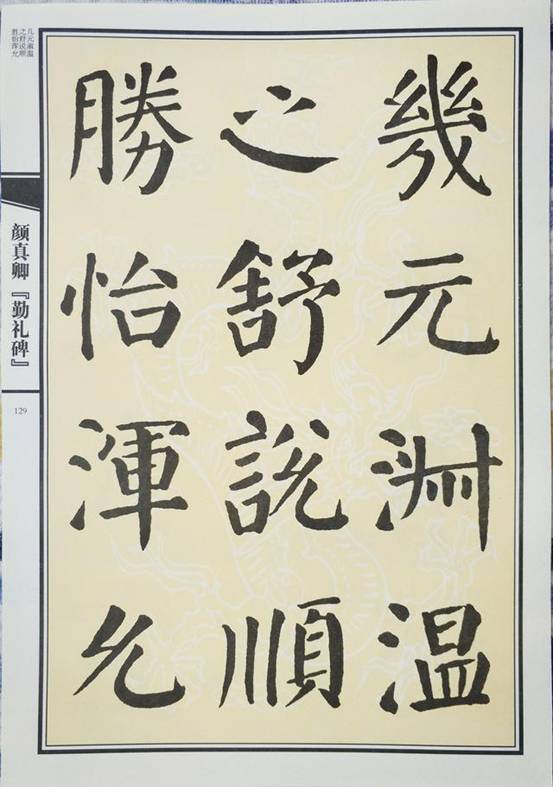 幾元淵温
之舒說順
勝怡渾允
几元渊温
之舒说顺
胜怡浑允
颜真卿『勤礼碑』
129